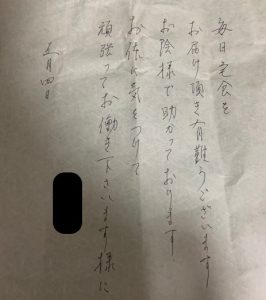 毎日宅食を
お届け頂き有難うございます
お陰様で助かっております
お体に気をつけて
頑張ってお働き下さいます様に
五月四日